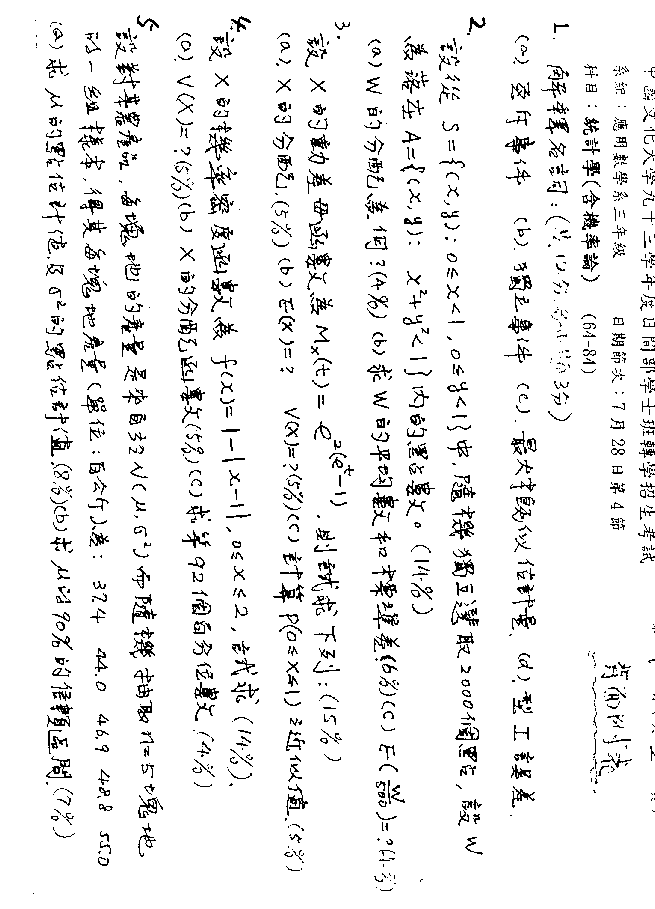 中國文化大學九十三學年度日間部學士班轉學招生考試
系組：應用數學系三年級 日期節次：7月28日第4節
科目：統計學(含機率論) (64-81)
背面附表
1. 解釋名詞：(共12分,每小題3分)
(a) 互斥事件 (b) 獨立事件 (c) 最大概似估計量 (d) 型I誤差
2. 設從 S={(x,y): 0≤x<1, 0≤y<1}中,隨機獨立選取2000個點,設W
為落在 A={(x,y): x²+y²<1}內的點數。(14%)
(a) W的分配為何?(4%) (b) 求W的平均數和標準差(6%) (c) E(W/500)=?(4%)
3. 設X的動差母函數為 Mx(t)= e^{2(e^t-1)}, 則試求下列：(15%)
(a) X的分配(5%) (b) E(X)=? V(X)=?(5%) (c) 計算 P(0≤X≤1)之近似值(5%)
4. 設X的機率密度函數為 f(x)=1-|x-1|, 0≤x≤2, 試求(14%)
(a) V(X)=?(5%) (b) X的分配函數(5%) (c) 求第92個百分位數(4%)
5. 設對某農產品,每塊地的產量是來自於N(μ,σ²)而隨機抽取n=5塊地
的一組樣本,得其每塊地產量(單位：百公斤)為： 37.4 44.0 46.9 48.8 55.0
(a) 求μ的點估計值及σ²的點估計值(8%) (b) 求μ的90%的信賴區間(7%)